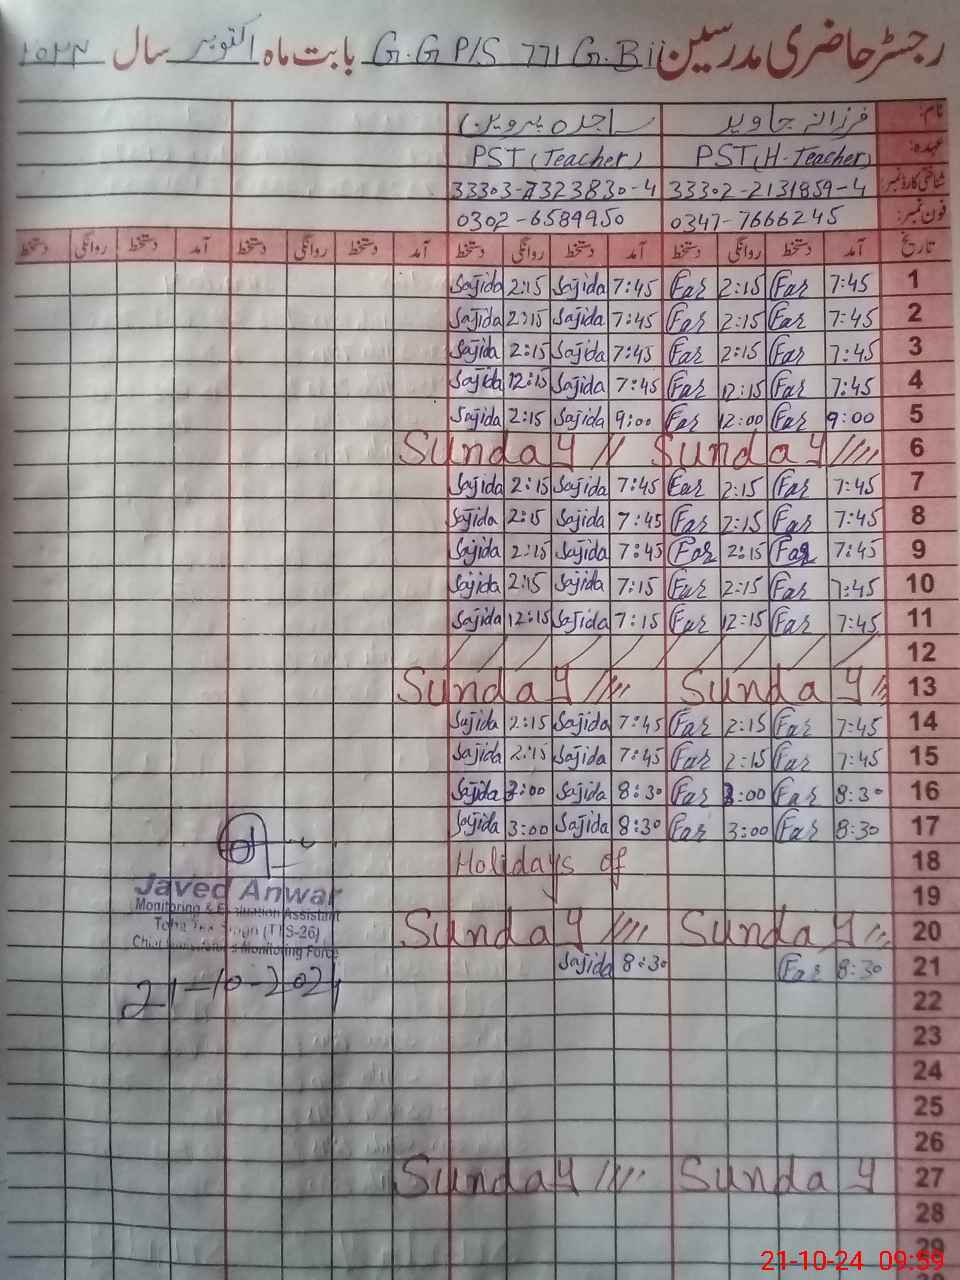 رجسٹر حاضری مدرسین G.G P/S 771 G.B بابت ماہ اکتوبر سال ۲۰۲۴
نام: فرزانہ جاوید ساجدہ پروین
عہدہ: PST(H-Teacher) PST(Teacher)
شناختی کارڈ نمبر: 33302-2131859-4 33303-7323830-4
فون نمبر: 0347-7666245 0302-6589950
تاریخ آمد دستخط روانگی دستخط آمد دستخط روانگی دستخط آمد دستخط روانگی دستخط آمد دستخط روانگی دستخط
Sajida 2:15 Sajida 7:45 Far 2:15 Far 7:45 1
Sajida 2:15 Sajida 7:45 Far 2:15 Far 7:45 2
Sajida 2:15 Sajida 7:45 Far 2:15 Far 7:45 3
Sajida 12:15 Sajida 7:45 Far 12:15 Far 7:45 4
Sajida 2:15 Sajida 9:00 Far 12:00 Far 9:00 5
Sunday Sunday 6
Sajida 2:15 Sajida 7:45 Far 2:15 Far 7:45 7
Sajida 2:15 Sajida 7:45 Far 2:15 Far 7:45 8
Sajida 2:15 Sajida 7:45 Far 2:15 Far 7:45 9
Sajida 2:15 Sajida 7:15 Far 2:15 Far 7:45 10
Sajida 12:15 Sajida 7:15 Far 12:15 Far 7:45 11
12
Sunday Sunday 13
Sajida 2:15 Sajida 7:45 Far 2:15 Far 7:45 14
Sajida 2:15 Sajida 7:45 Far 2:15 Far 7:45 15
Sajida 3:00 Sajida 8:30 Far 3:00 Far 8:30 16
Sajida 3:00 Sajida 8:30 Far 3:00 Far 8:30 17
Holidays of 18
19
Sunday Sunday 20
Sajida 8:30 Far 8:30 21
Javed Anwar
Monitoring & Evaluation Assistant
Toba Tek Singh (TTS-26)
Chief Minister's Monitoring Force
21-10-2024
22
23
24
25
26
Sunday Sunday 27
28
29
21-10-24 09:59